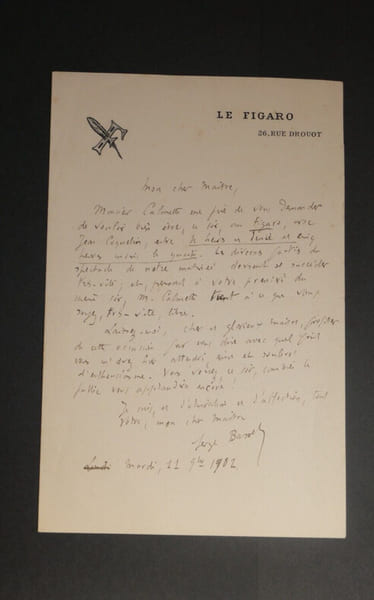 LE FIGARO
26, RUE DROUOT
Mon cher Maître,
Monsieur Calmette me prie de vous demander
de vouloir bien être, ce soir, au Figaro, avec
Jean Coquelin, entre 4 heures et demie et cinq
heures moins le quart. Les diverses parties du
spectacle de notre matinée devront se succéder
très vite ; et, prenant à votre
même soir, M. Calmette tient à ce que vous
soyez, très vite, libre.
Laissez-moi, cher et glorieux maître, profiter
de cette occasion pour vous dire avec quel
vous m'avez hier attendri, ému et
d'enthousiasme. Vous verrez, ce soir, combien le
public vous applaudira encore !
Je suis, et d'admiration et d'affection, tout
vôtre, mon cher maître
Serge Basset
Mardi, 11 9bre 1902